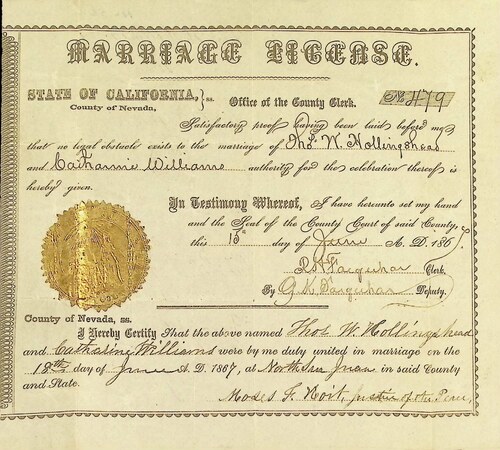 MARRIAGE LICENSE.
STATE OF CALIFORNIA, } ss.
County of Nevada,
Office of the County Clerk.
No 479
Satisfactory proof having been laid before me
that no legal obstacle exists to the marriage of Thos. W. Hollingshead
and Catharine Williams authority for the celebration thereof is
hereby given.
In Testimony Whereof, I have hereunto set my hand
and the Seal of the County Court of said County,
this 15th day of June A. D. 1867.
R H Farquhar Clerk.
By G. K. Farquhar Deputy.
County of Nevada, ss.
I Hereby Certify That the above named Thos W. Hollingshead
and Catharine Williams were by me duly united in marriage on the
18th day of June A. D. 1867, at North San Juan in said County
and State.
Moses F. Hoit, Justice of the Peace,